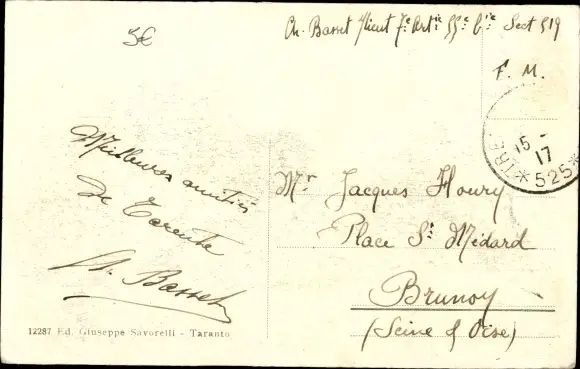 5€
Ch. Basset s/lieut 7e Artie 55e bie Sect 519
F. M.
15 -
17
*525*
Meilleures amitiés
de Tarente
Ch. Basset
Mr Jacques Floury
Place St Médard
Brunoy
(Seine & Oise)
12287 Ed. Giuseppe Savorelli - Taranto